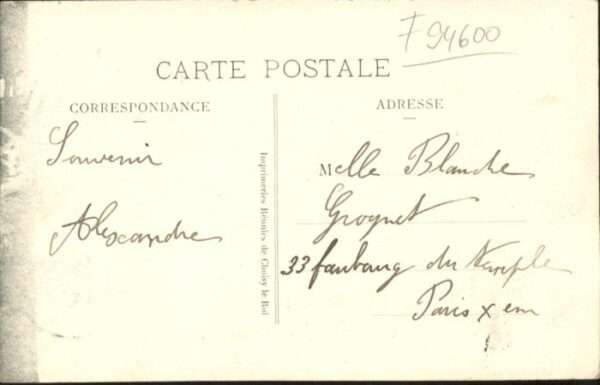 F 94600
CARTE POSTALE
CORRESPONDANCE
Souvenir
Alexandre
Imprimeries Réunies de Choisy le Roi
ADRESSE
Melle Blanche
Grognet
33 faubourg du Temple
Paris x em